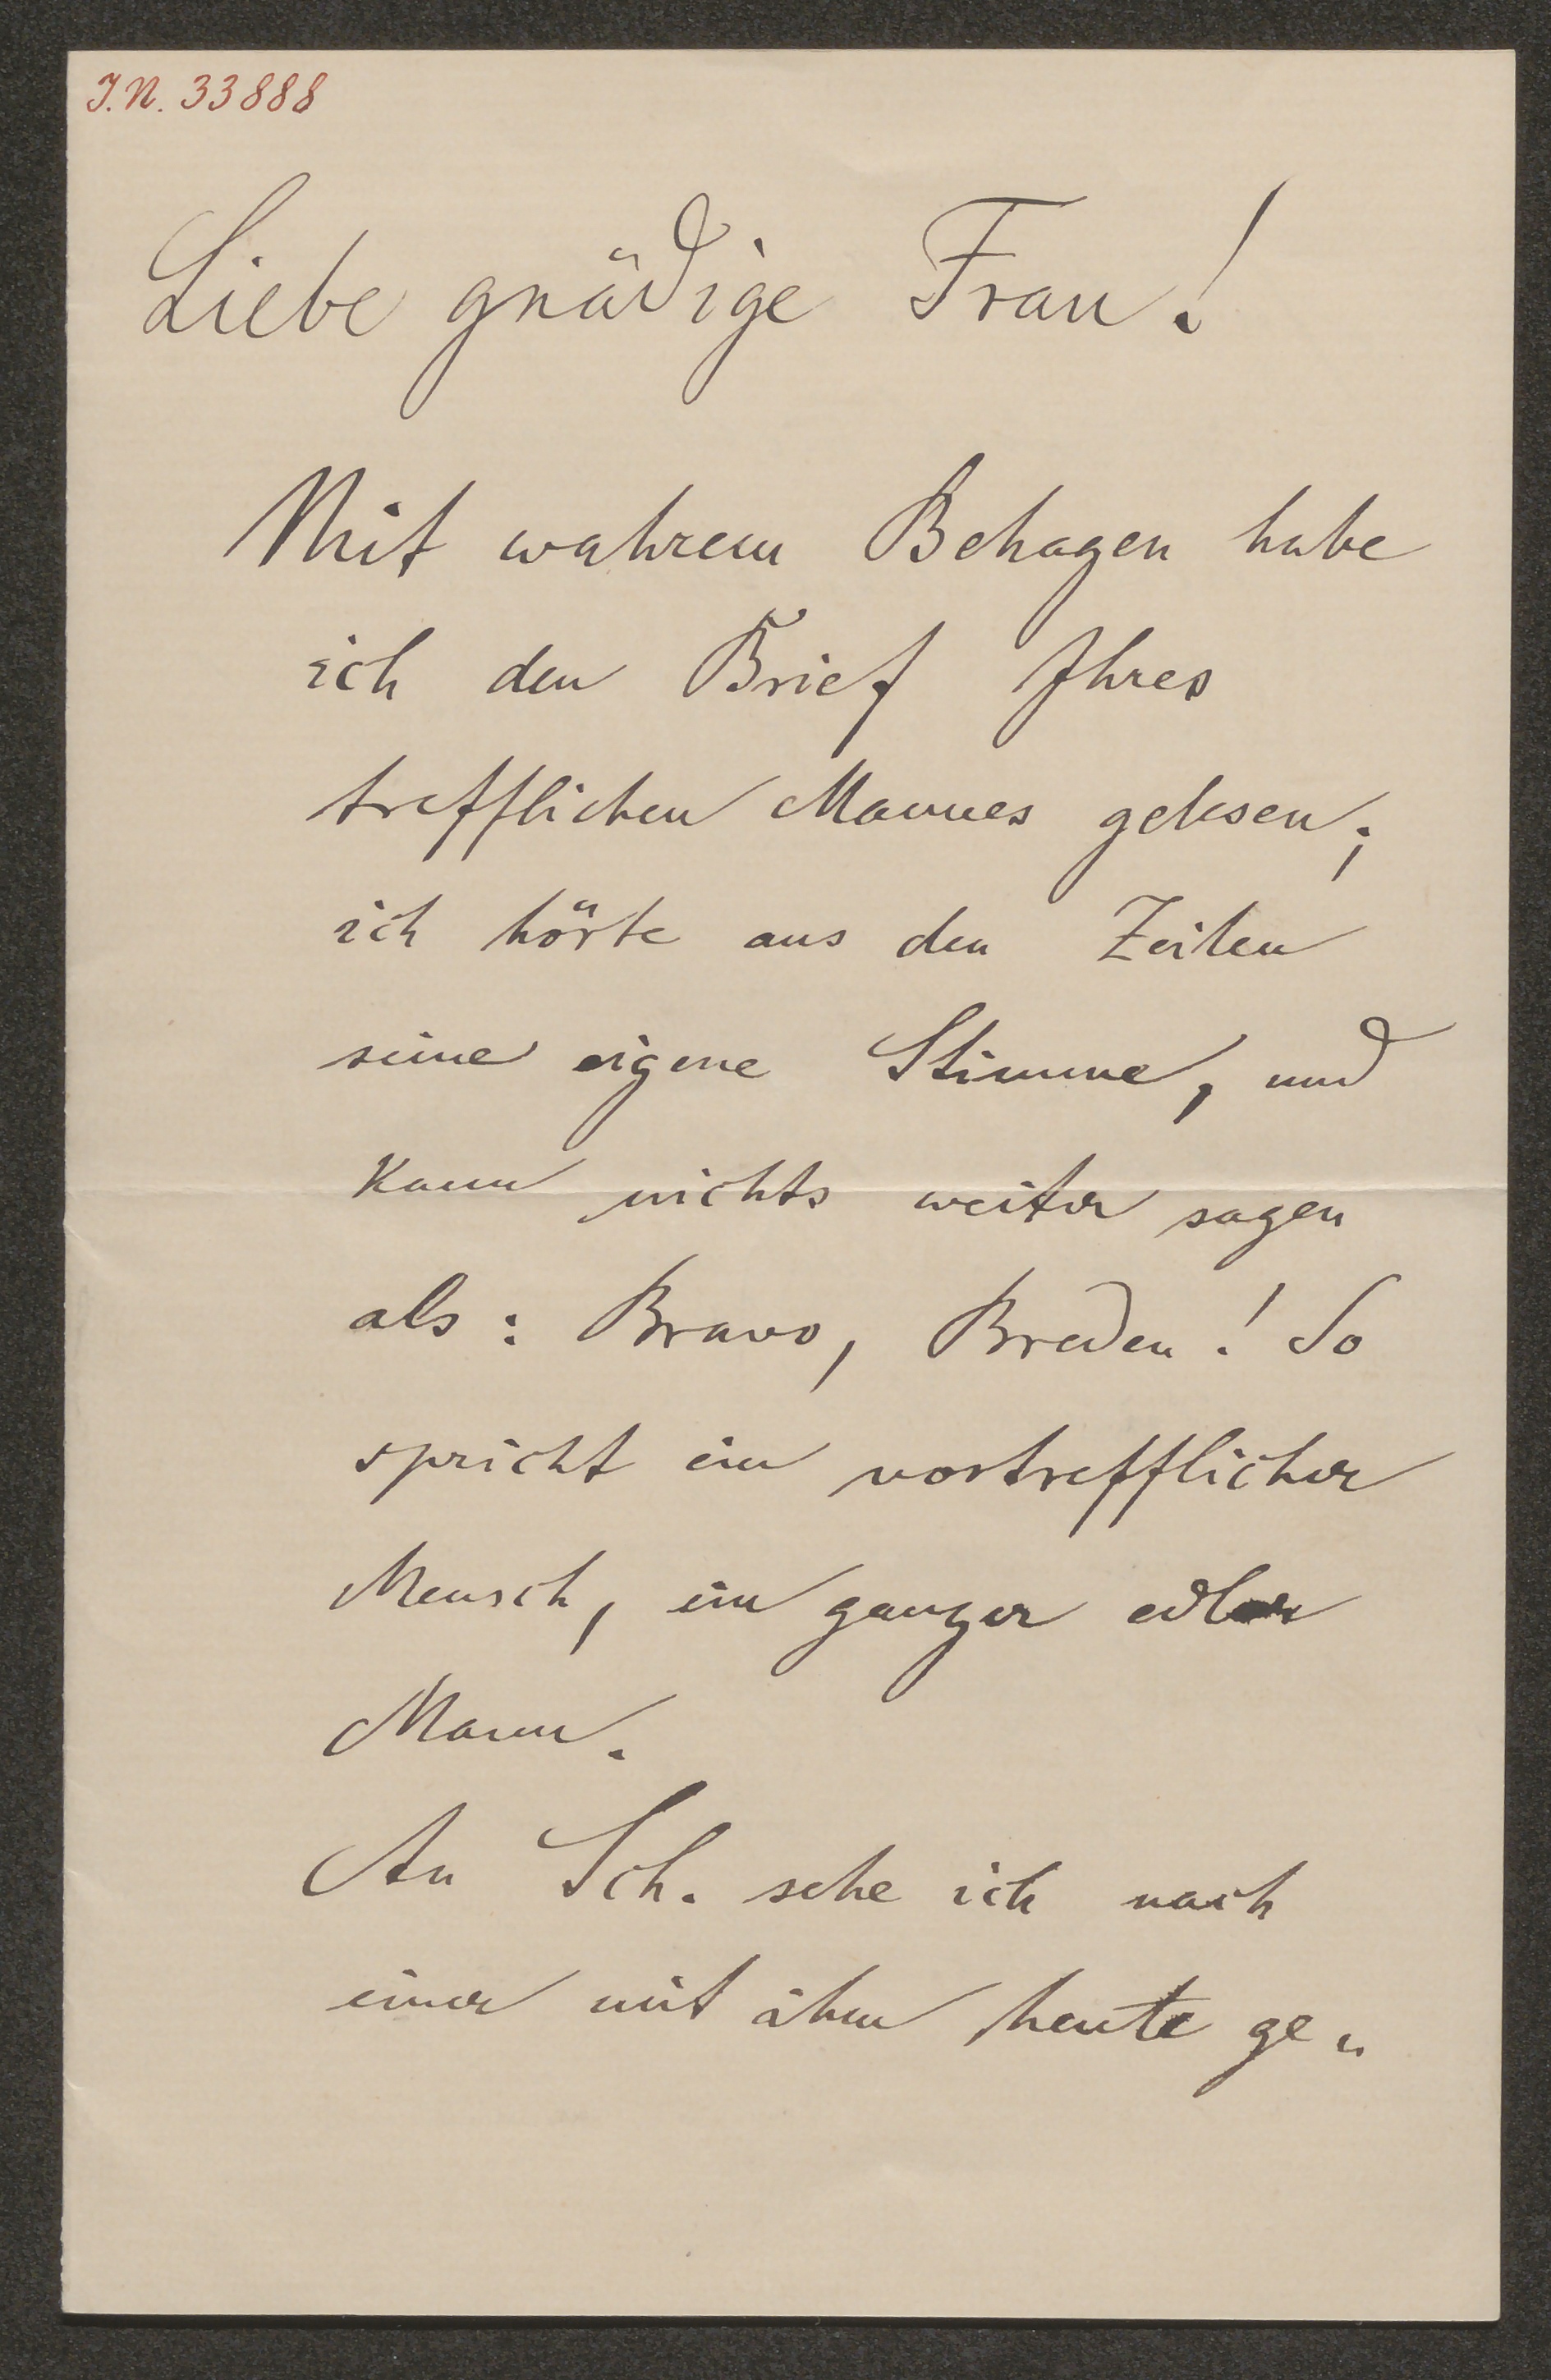 J.N. 33888
Liebe gnädige Frau!
Mit wahrem Behagen habe
ich den Brief Ihres
trefflichen Mannes gelesen;
ich hörte aus den Zeilen
seine eigene Stimme, und
kann nichts weiter sagen
als: Bravo, Breden! So
spricht ein vortrefflicher
Mensch, ein ganzer edler
Mann.
An Sch. sehe ich nach
einer mit ihm heute ge„